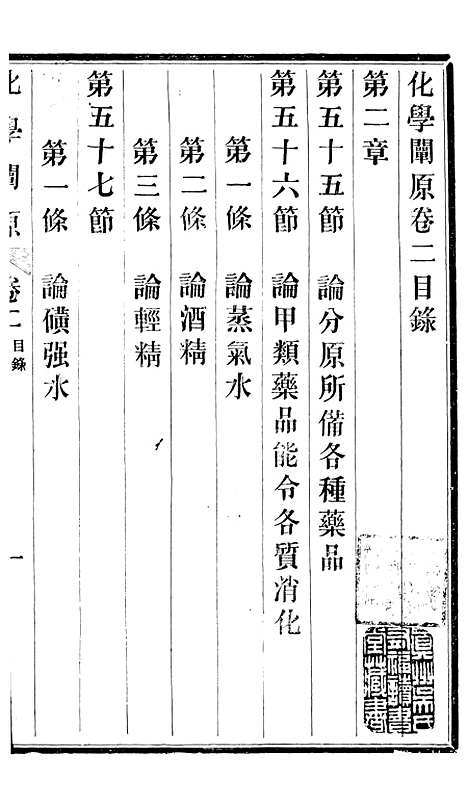 化學闡原卷二目錄
第二章
第五十五節 論分原所備各種藥品
第五十六節 論甲類藥品能令各質消化
第一條 論蒸氣水
第二條 論酒精
第三條 論輕精
第五十七節
第一條 論磺强水
化學闡原 卷二 目錄 一